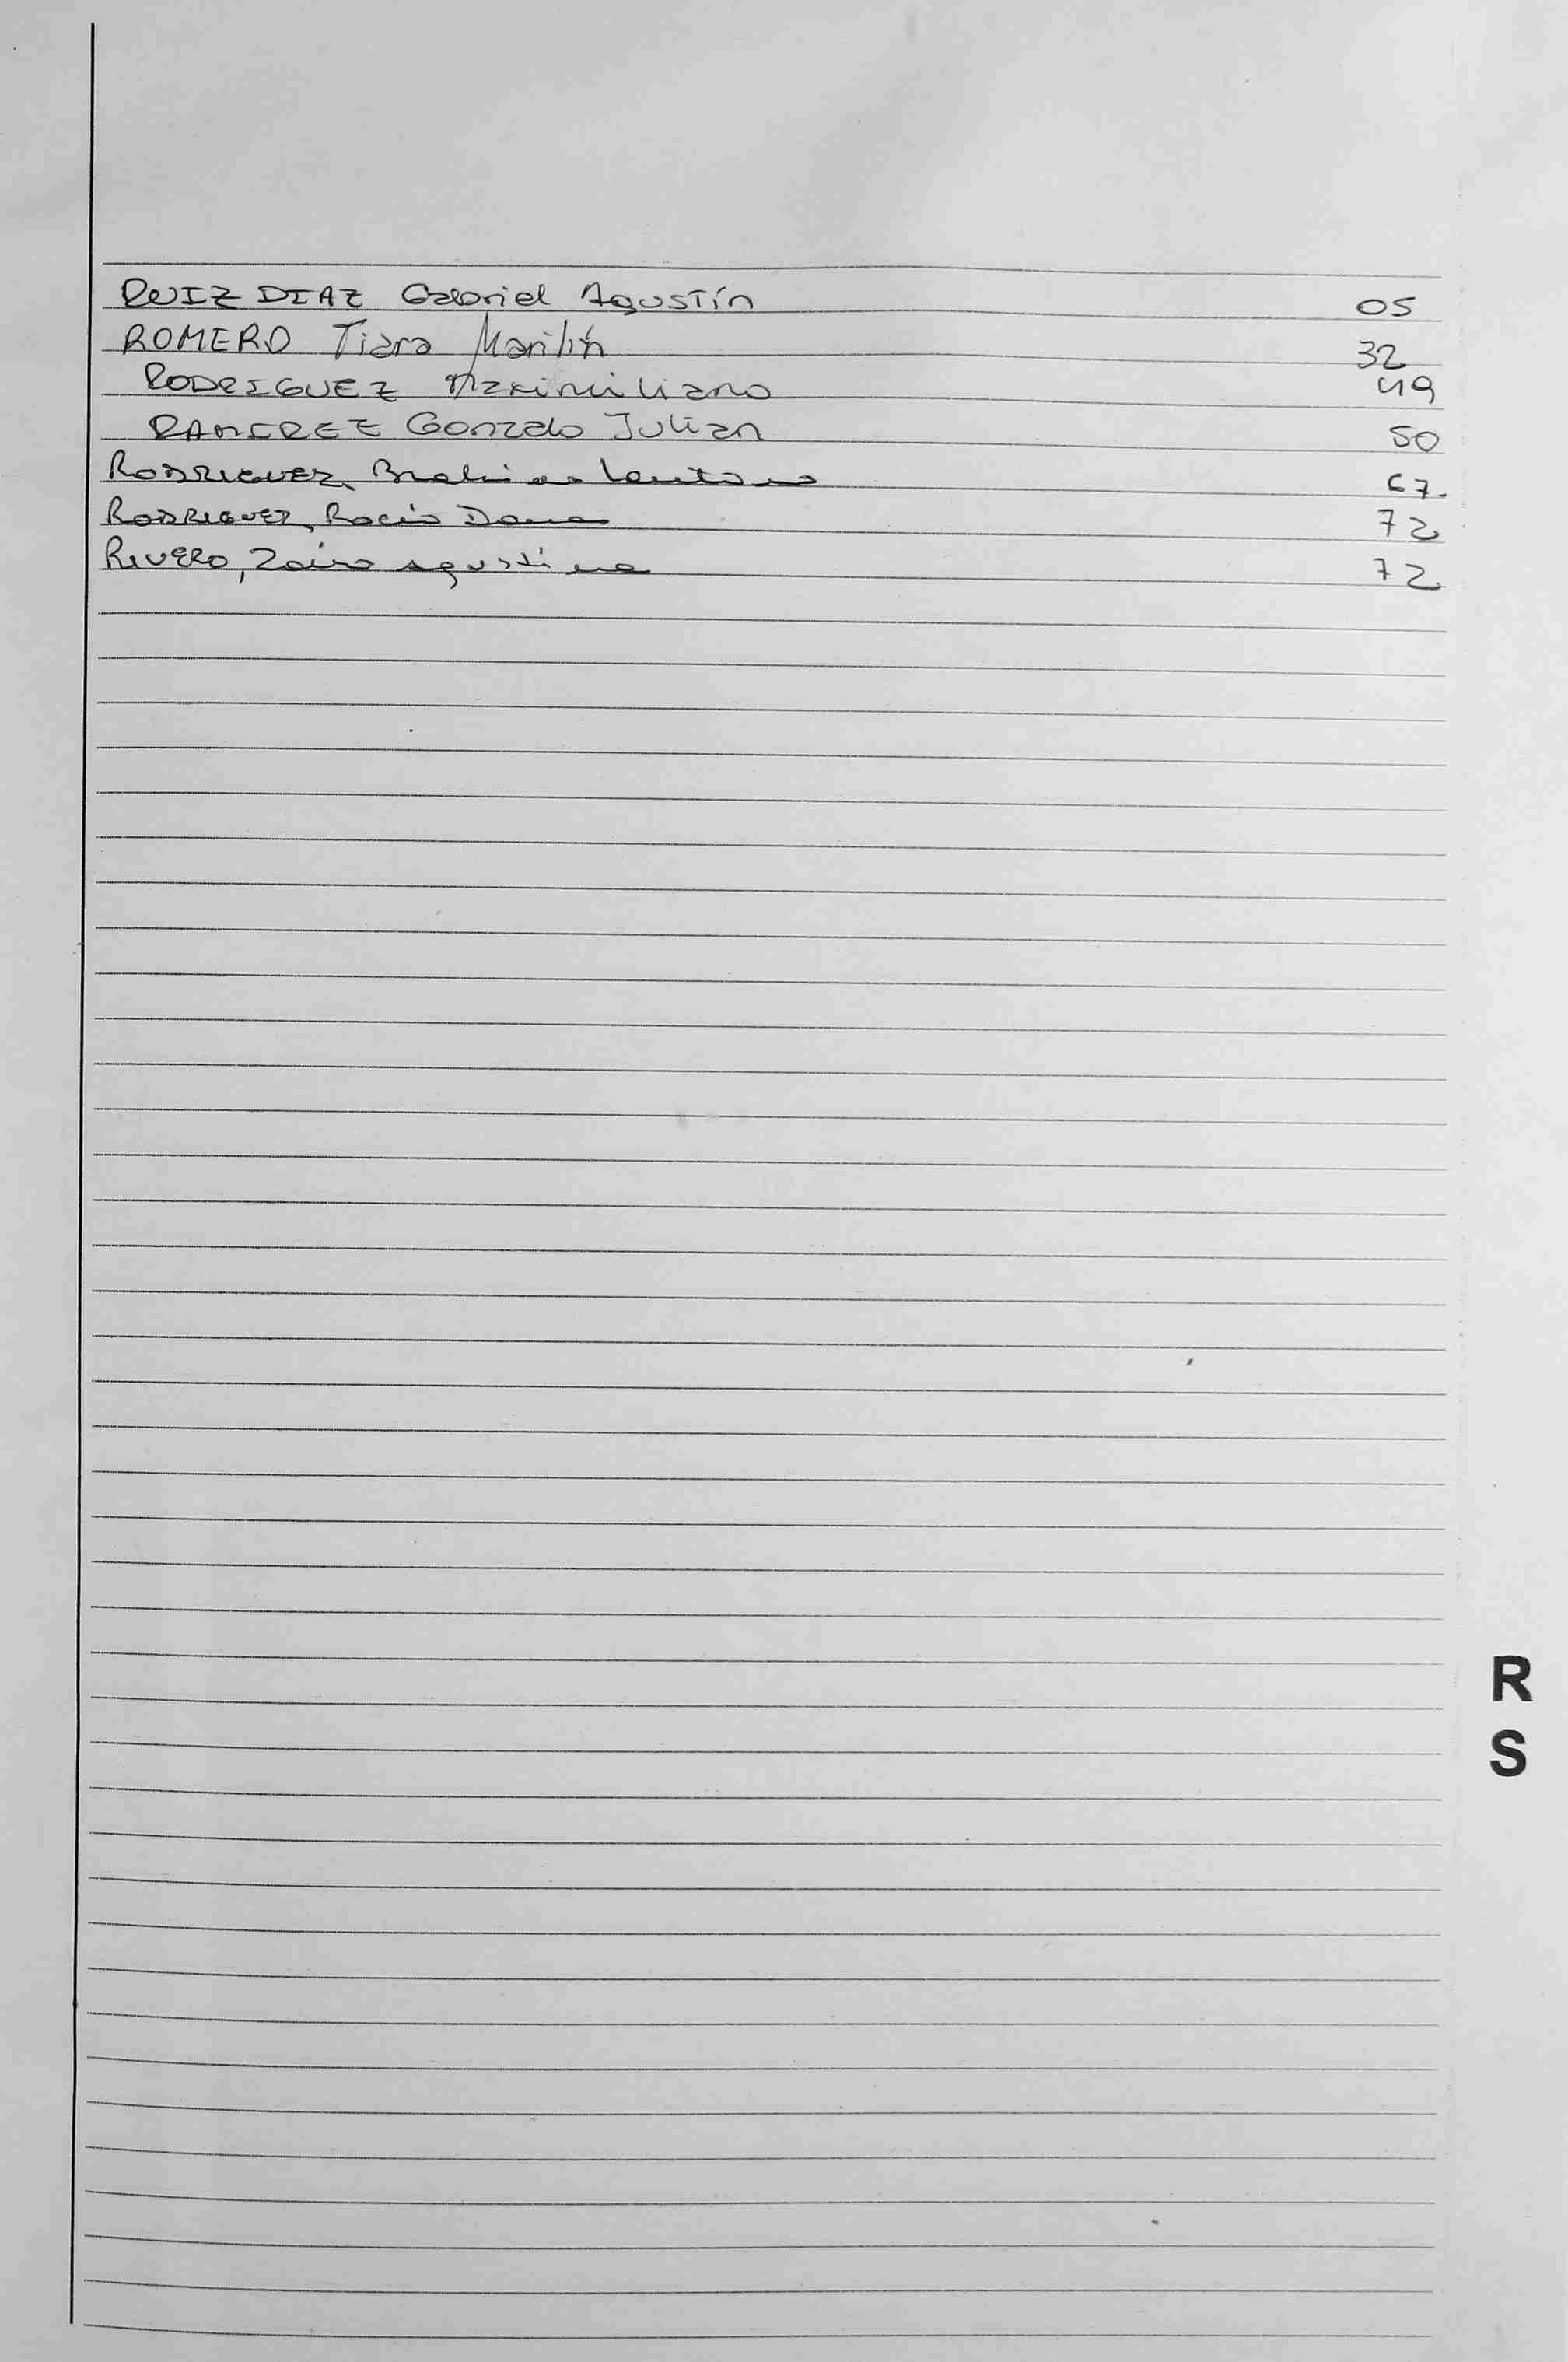 RUIZ DIAZ Gabriel Agustín 05
ROMERO Tiara Marilín 32
RODRIGUEZ Maximiliano 49
RAMIREZ Gonzalo Julian 50
RODRIGUEZ, Lautaro 67.
RODRIGUEZ, Rocío Dana 72
RIVERO, Zaira Agustina 72
R
S